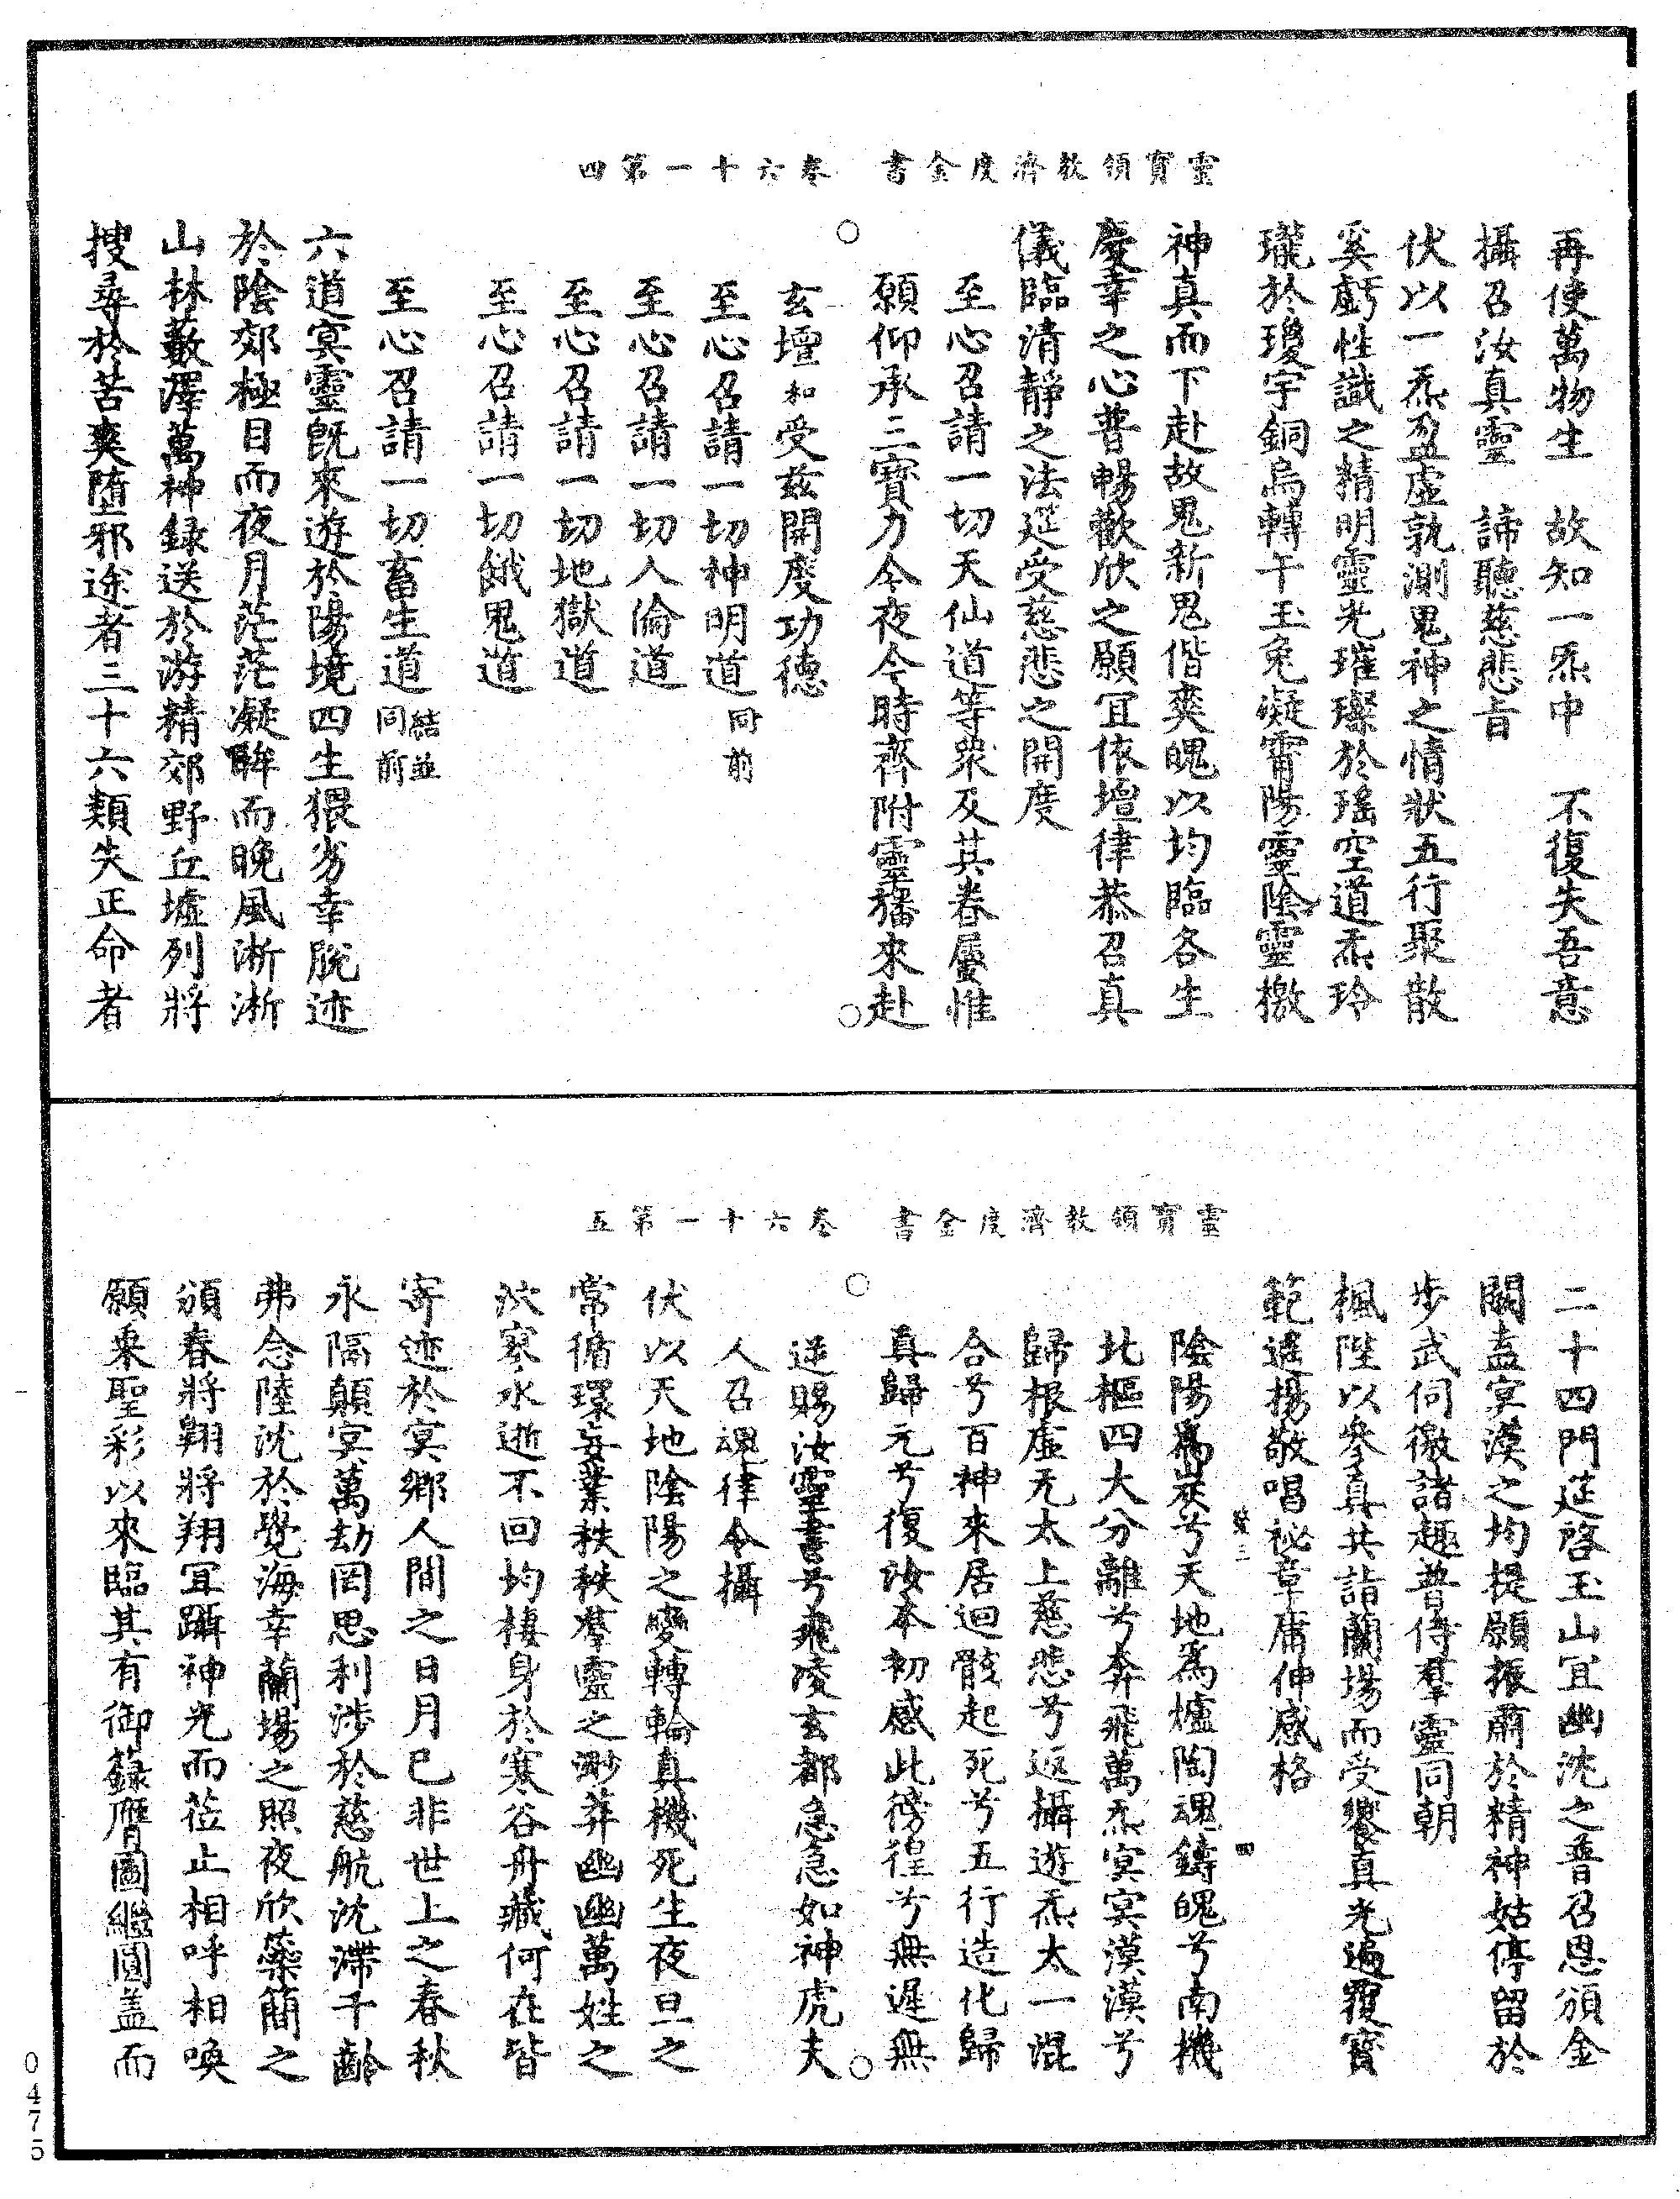 靈寶領教濟度金書 卷六十一第四
再使萬物生 故知一炁中 不復失吾意
攝召汝真靈 諦聽慈悲旨
伏以一炁盈虛孰測鬼神之情狀五行聚散
奚虧性識之精明靈光璀璨於瑤空道炁玲
瓏於瓊宇銅烏轉午玉兔凝霄陽靈陰靈檄
神真而下赴故鬼新鬼偕爽魄以均臨各生
慶幸之心普暢歡欣之願宜依壇律恭召真
儀臨清靜之法筵受慈悲之開度
至心召請一切天仙道等衆及其眷屬惟
願仰承三寶力今夜今時齊附靈旛來赴
玄壇和受茲開度功德
至心召請一切神明道同前
至心召請一切人倫道
至心召請一切地獄道
至心召請一切餓鬼道
至心召請一切畜生道結並同前
六道冥靈旣來遊於陽境四生猥劣幸脫迹
於陰郊極目而夜月茫茫凝眸而晚風淅淅
山林藪澤萬神錄送於游精郊野丘墟列將
搜尋於苦爽墮邪途者三十六類失正命者
靈寶領教濟度金書 卷六十一第五
二十四門莚啓玉山冝幽沈之普召恩頒金
闕盍冥漠之均提願振肅於精神姑停留於
步武伺徹諸趣普侍羣靈同朝
楓陛以參真共詣蘭場而受饗真光遍覆寳
範遥揚敬唱祕章庸伸感格
陰陽爲炭兮天地爲爐陶魂鑄魄兮南機
北樞四大分離兮奔飛萬炁冥冥漠漠兮
歸根虛无太上慈悲兮返攝遊炁太一混
合兮百神來居迴骸起死兮五行造化歸
真歸元兮復汝本初感此徬徨兮無遲無
逆賜汝靈書兮飛凌玄都急急如神虎夫
人召魂律令攝
伏以天地陰陽之變轉輪真機死生夜旦之
常循環妄業秩秩羣靈之渺莽幽幽萬姓之
泬寥水逝不回均棲身於寒谷舟藏何在皆
寄迹於冥鄉人間之日月巳非世上之春秋
永隔顛冥萬劫罔思利涉於慈航沈滯千齡
弗念陸沈於覺海幸蘭場之照夜欣蘂簡之
頒春將翺將翔冝躡神光而莅止相呼相喚
願乘聖彩以來臨其有御籙膺圖繼圓盖而
0475